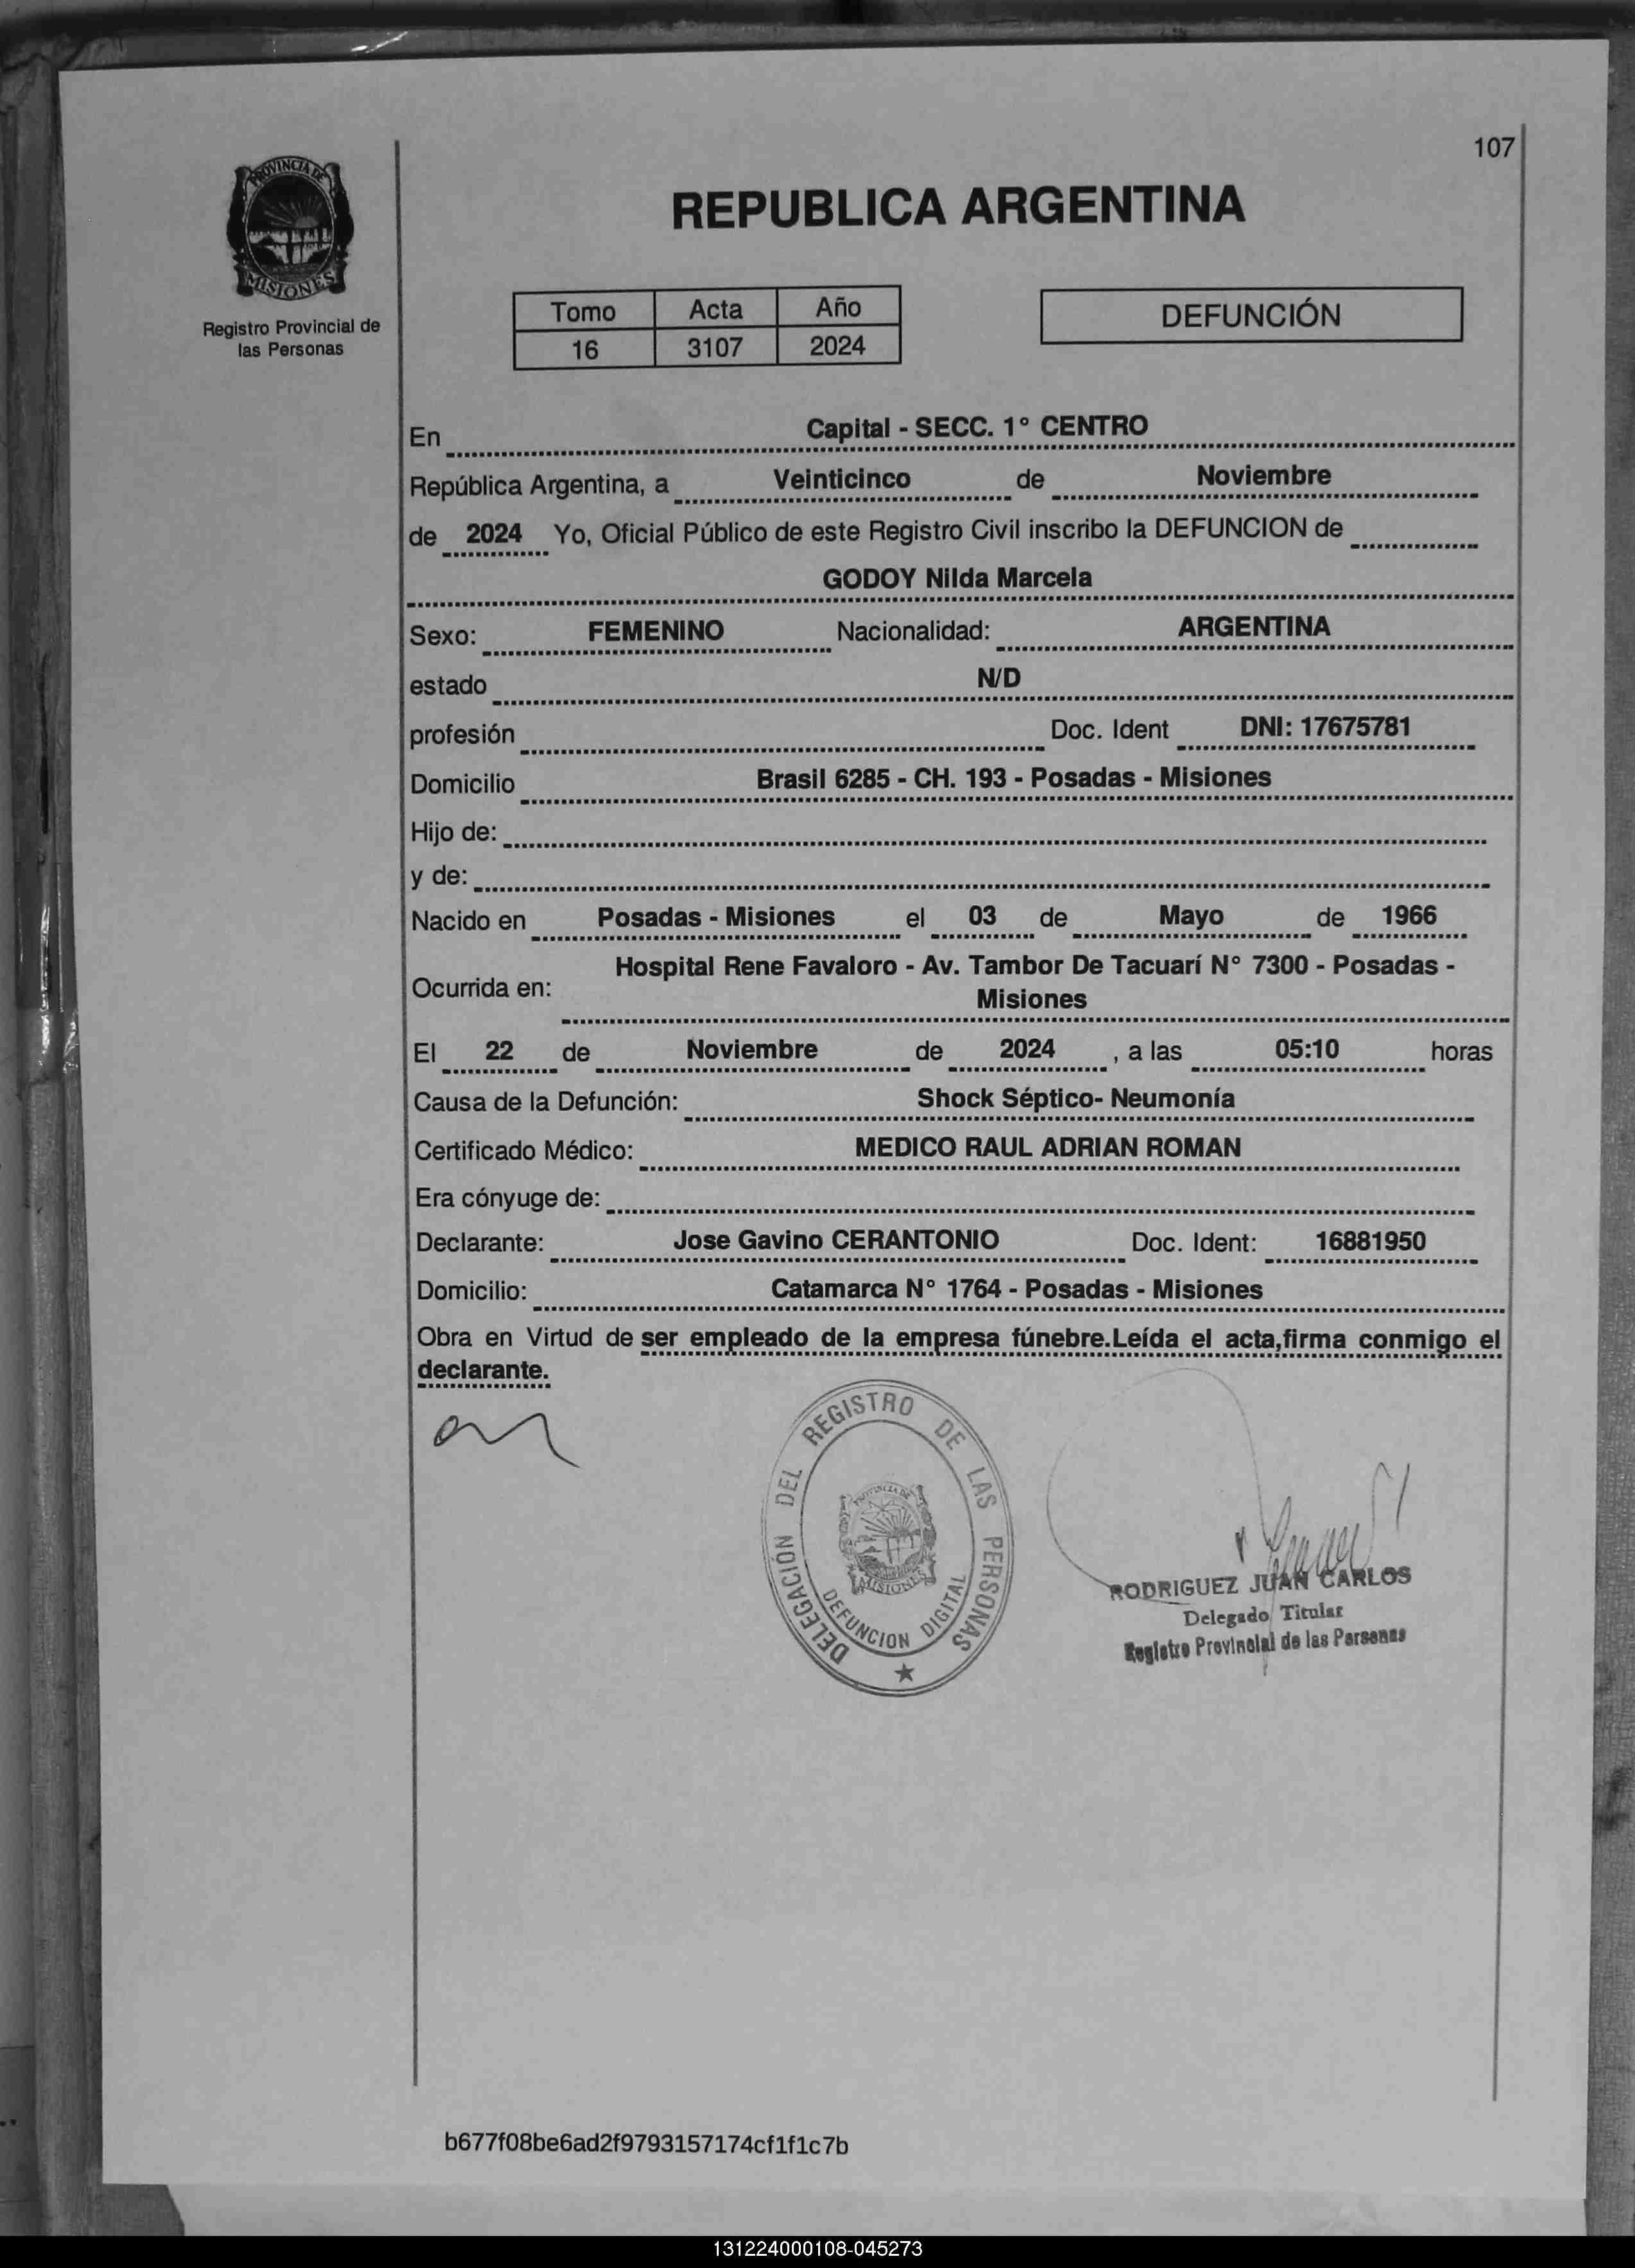 107
PROVINCIA DE
MISIONES
Registro Provincial de
las Personas
REPUBLICA ARGENTINA
Tomo Acta Año
16 3107 2024
DEFUNCIÓN
En Capital - SECC. 1° CENTRO
República Argentina, a Veinticinco de Noviembre
de 2024 Yo, Oficial Público de este Registro Civil inscribo la DEFUNCION de
GODOY Nilda Marcela
Sexo: FEMENINO Nacionalidad: ARGENTINA
estado N/D
profesión Doc. Ident DNI: 17675781
Domicilio Brasil 6285 - CH. 193 - Posadas - Misiones
Hijo de:
y de:
Nacido en Posadas - Misiones el 03 de Mayo de 1966
Hospital Rene Favaloro - Av. Tambor De Tacuarí N° 7300 - Posadas -
Ocurrida en: Misiones
El 22 de Noviembre de 2024 , a las 05:10 horas
Causa de la Defunción: Shock Séptico- Neumonía
Certificado Médico: MEDICO RAUL ADRIAN ROMAN
Era cónyuge de:
Declarante: Jose Gavino CERANTONIO Doc. Ident: 16881950
Domicilio: Catamarca N° 1764 - Posadas - Misiones
Obra en Virtud de ser empleado de la empresa fúnebre.Leída el acta,firma conmigo el
declarante.
DELEGACIÓN DEL REGISTRO DE LAS PERSONAS
PROVINCIA DE
MISIONES
DEFUNCION DIGITAL
RODRIGUEZ JUAN CARLOS
Delegado Titular
Registro Provincial de las Personas
b677f08be6ad2f9793157174cf1f1c7b
131224000108-045273